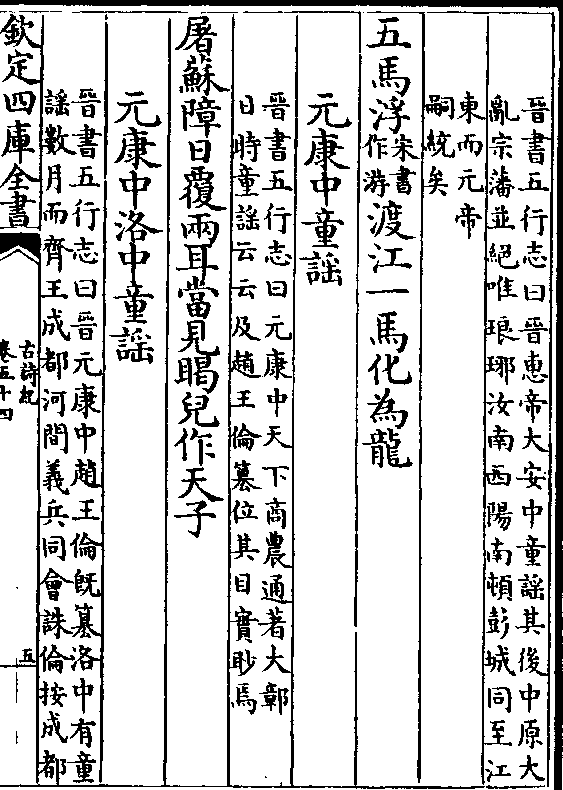 晉書五行志曰晉惠帝大安中童謡其後中原大
亂宗藩並絕唯琅琊汝南西陽南頓彭城同至江
東而元帝
嗣統矣
五馬浮宋書作游渡江一馬化為龍
元康中童謡
晉書五行志曰元康中天下商農通著大鄣
日時童謡云云及趙王倫簒位其目實眇焉
屠蘇障日覆兩耳當見瞎兒作天子
元康中洛中童謡
晉書五行志曰晉元康中趙王倫既簒洛中有童
謡數月而齊王成都河間義兵同會誅倫按成都
欽定四庫全書
古詩紀
卷五十四
五